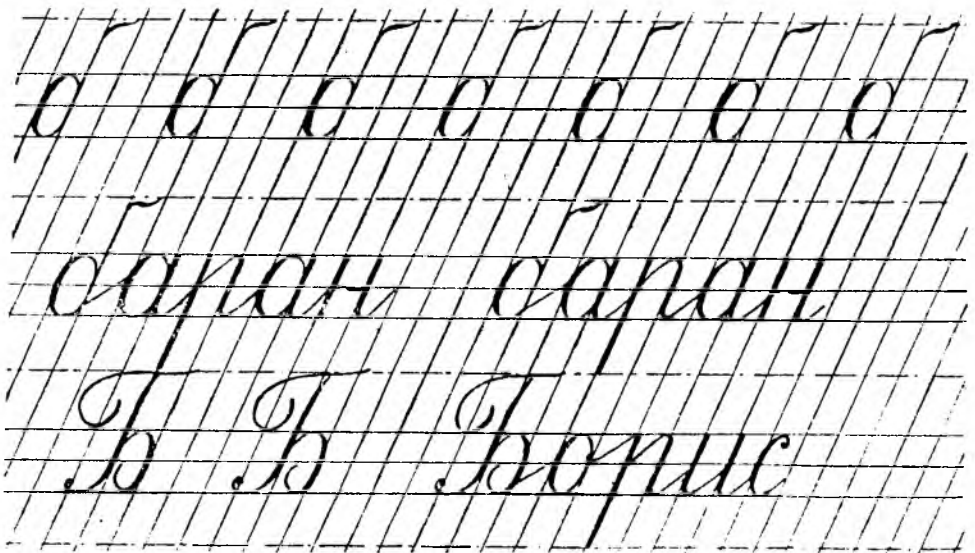 б б б б б б б
баран баран
Б Б Борис